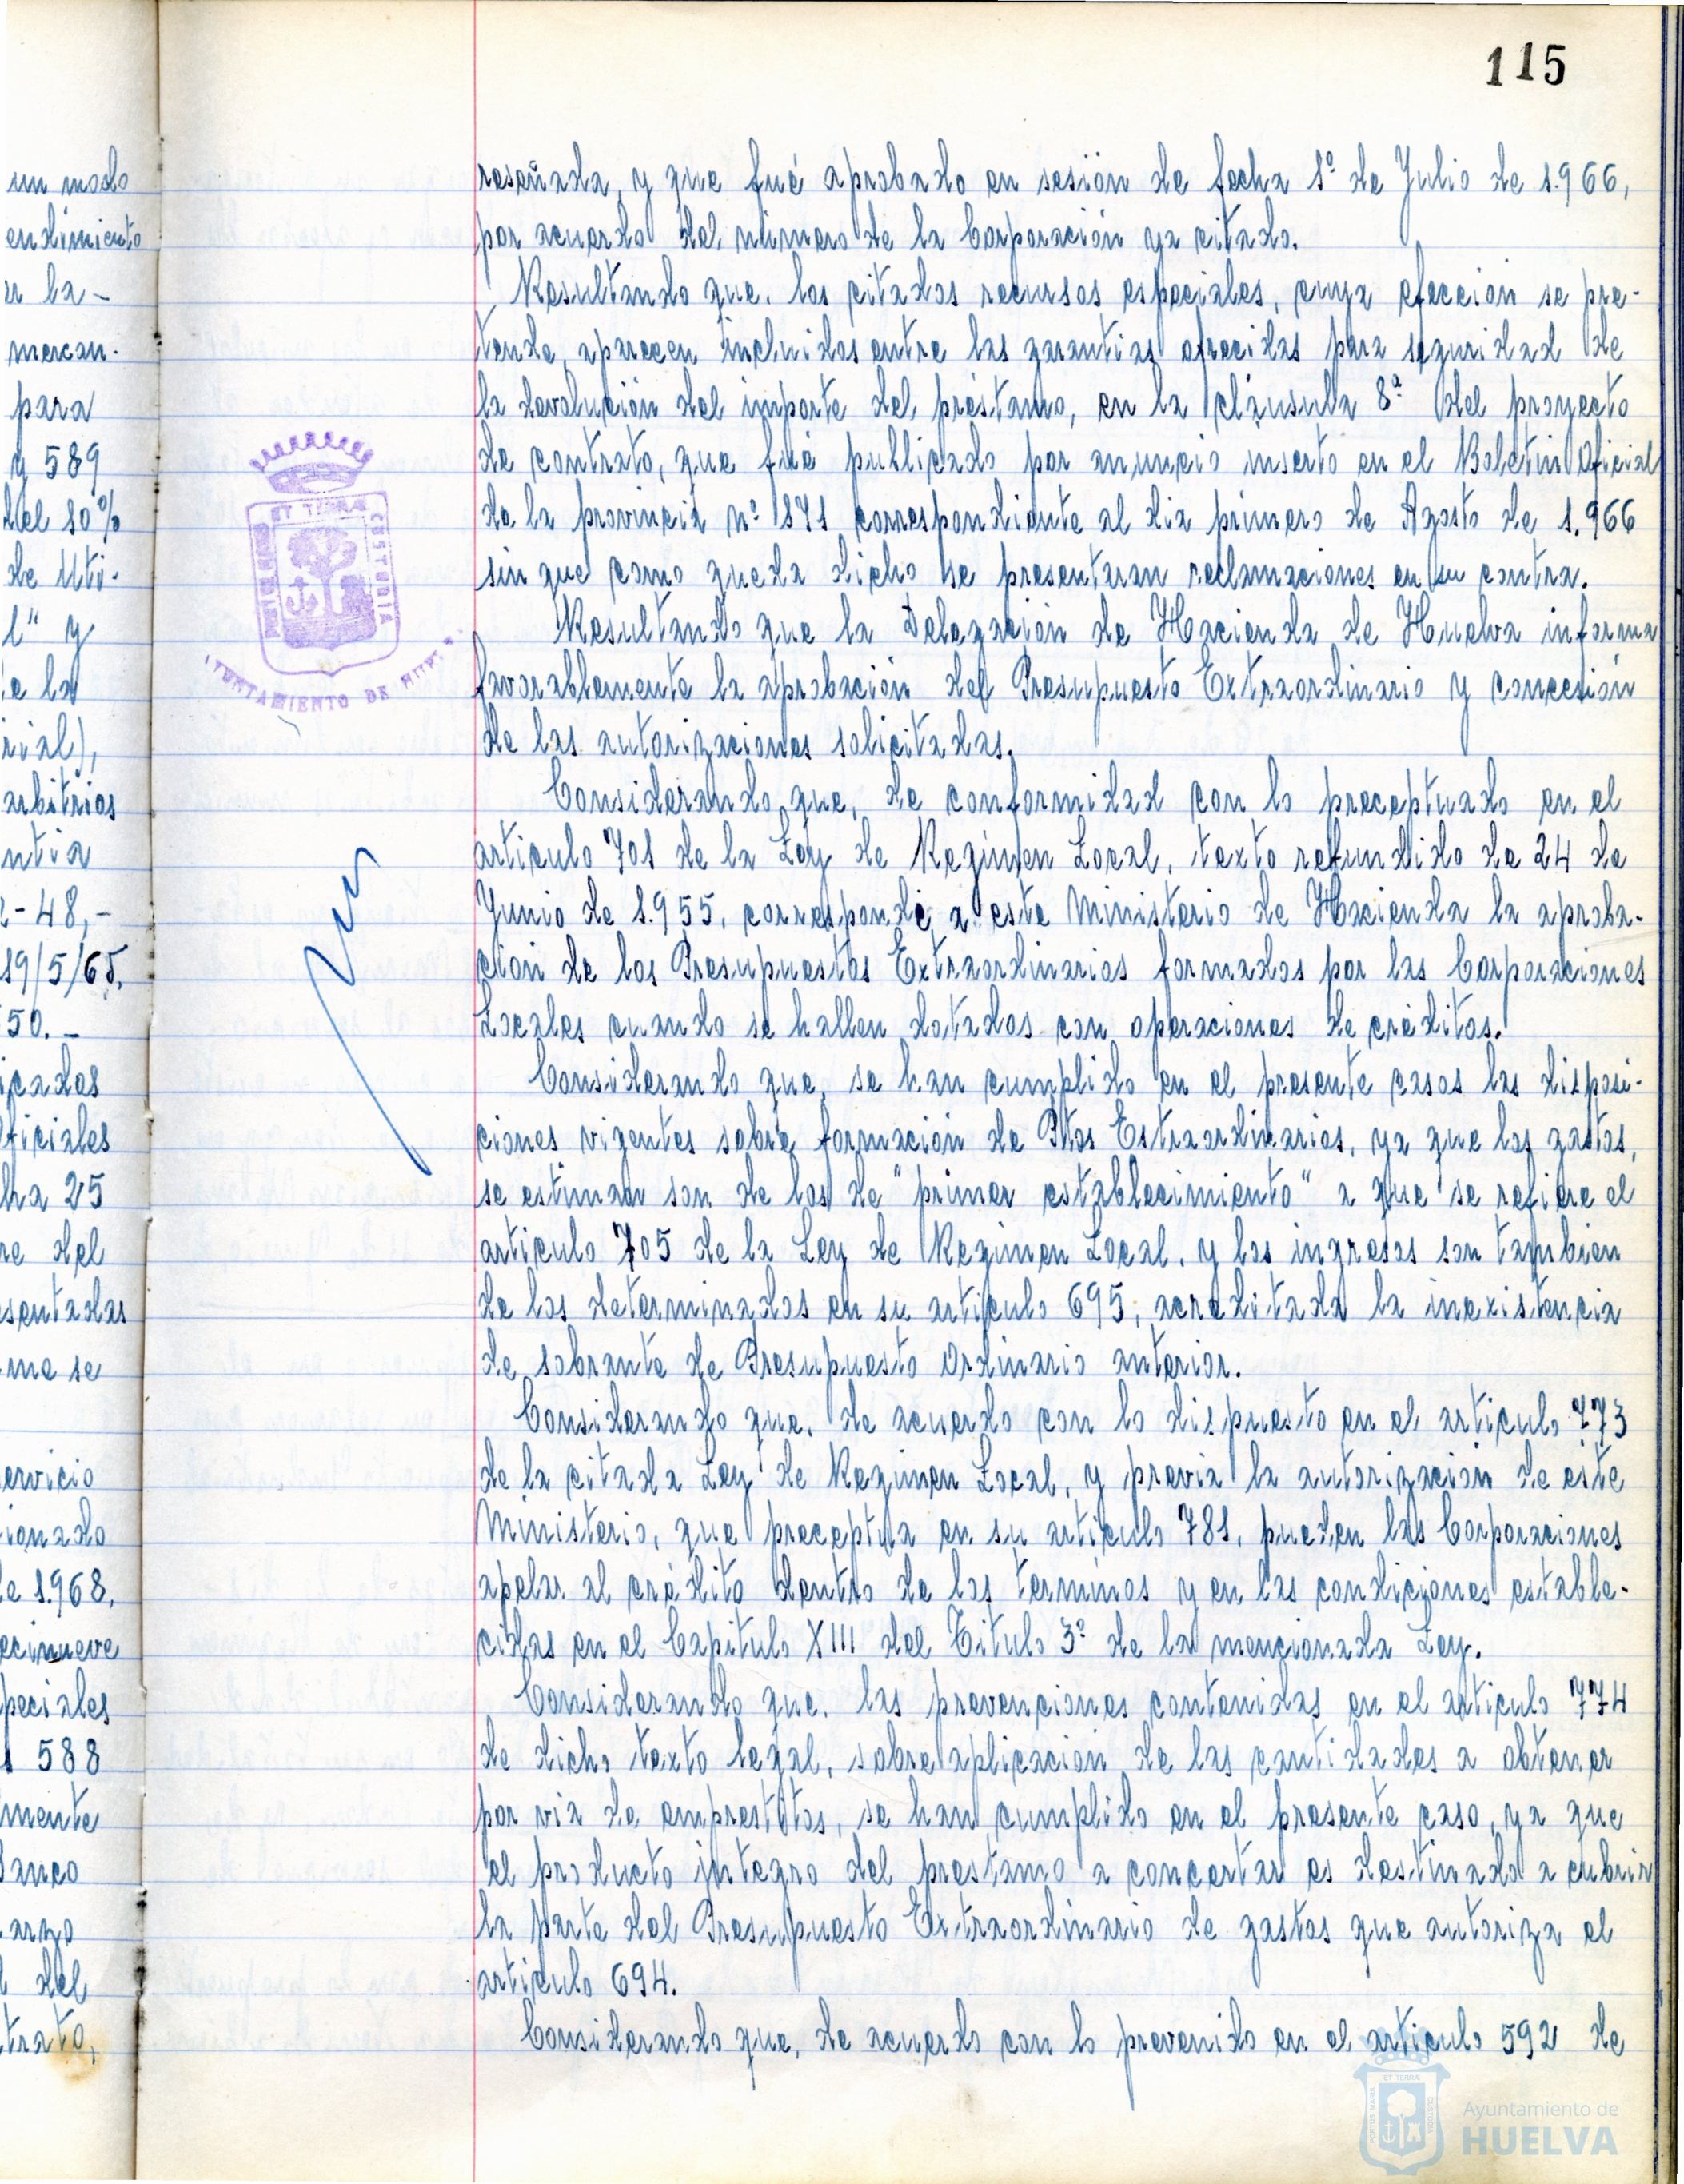 115
un modo
endimiento
la-
mercan-
para
y 589
del 10%
de Uti-
l" y
e la
rial),
arbitrios
ntia
-48,-
19/5/65.
50.-
icados
ficiales
ha 25
re del
sentadas
me se
ervicio
ionado
e 1.968,
ecinueve
peciales
588
mente
anco
arzo
del
trato,
reseñada, y que fué aprobado en sesión de fecha 1º de Julio de 1.966,
por acuerdo del número de la Corporación ya citado.
Resultando que, los citados recursos especiales, cuya efección se pre-
tende, aparecen incluidos entre las garantias ofrecidas para seguridad de
la devolución del importe del préstamo, en la cláusula 8ª del proyecto
de contrato, que fué publicado por anuncio inserto en el Boletin Oficial
de la provincia nº 171 correspondiente al dia primero de Agosto de 1.966
sin que como queda dicho se presentaran reclamaciones en su contra.
Resultando que la Delegación de Hacienda de Huelva informa
favorablemente la aprobación del Presupuesto Extraordinario y concesión
de las autorizaciones solicitadas.
Considerando que, de conformidad con lo preceptuado en el
articulo 701 de la Ley de Regimen Local, texto refundido de 24 de
Junio de 1.955, corresponde a este Ministerio de Hacienda la aproba-
ción de los Presupuestos Extraordinarios formados por las Corporaciones
Locales cuando se hallen dotados con operaciones de créditos.
Considerando que, se han cumplido en el presente casos las disposi-
ciones vigentes sobre formación de Ptos Estraordinarios, ya que los gastos,
se estiman son de los de "primer establecimiento" a que se refiere el
articulo 705 de la Ley de Regimen Local, y los ingresos son tambien
de los determinados en su articulo 695, acreditada la inexistencia
de sobrante de Presupuesto Ordinario anterior.
Considerando que, de acuerdo con lo dispuesto en el articulo 773
de la citada Ley de Regimen Local, y previa la autorización de este
Ministerio, que preceptua en su articulo 781, pueden las Corporaciones
apelar al crédito dentro de los terminos y en las condiciones estable-
cidas en el Capitulo XIII del Titulo 3º de la mencionada Ley.
Considerando que, las prevenciones contenidas en el articulo 774
de dicho texto legal, sobre aplicación de las cantidades a obtener
por via de emprestitos, se han cumplido en el presente caso, ya que
el producto integro del prestamo a concertar es destinado a cubrir
la parte del Presupuesto Extraordinario de gastos que autoriza el
articulo 694.
Considerando que, de acuerdo con lo prevenido en el articulo 592 de
ET TERRAE CUSTODIA
AYUNTAMIENTO DE
Ayuntamiento de
HUELVA